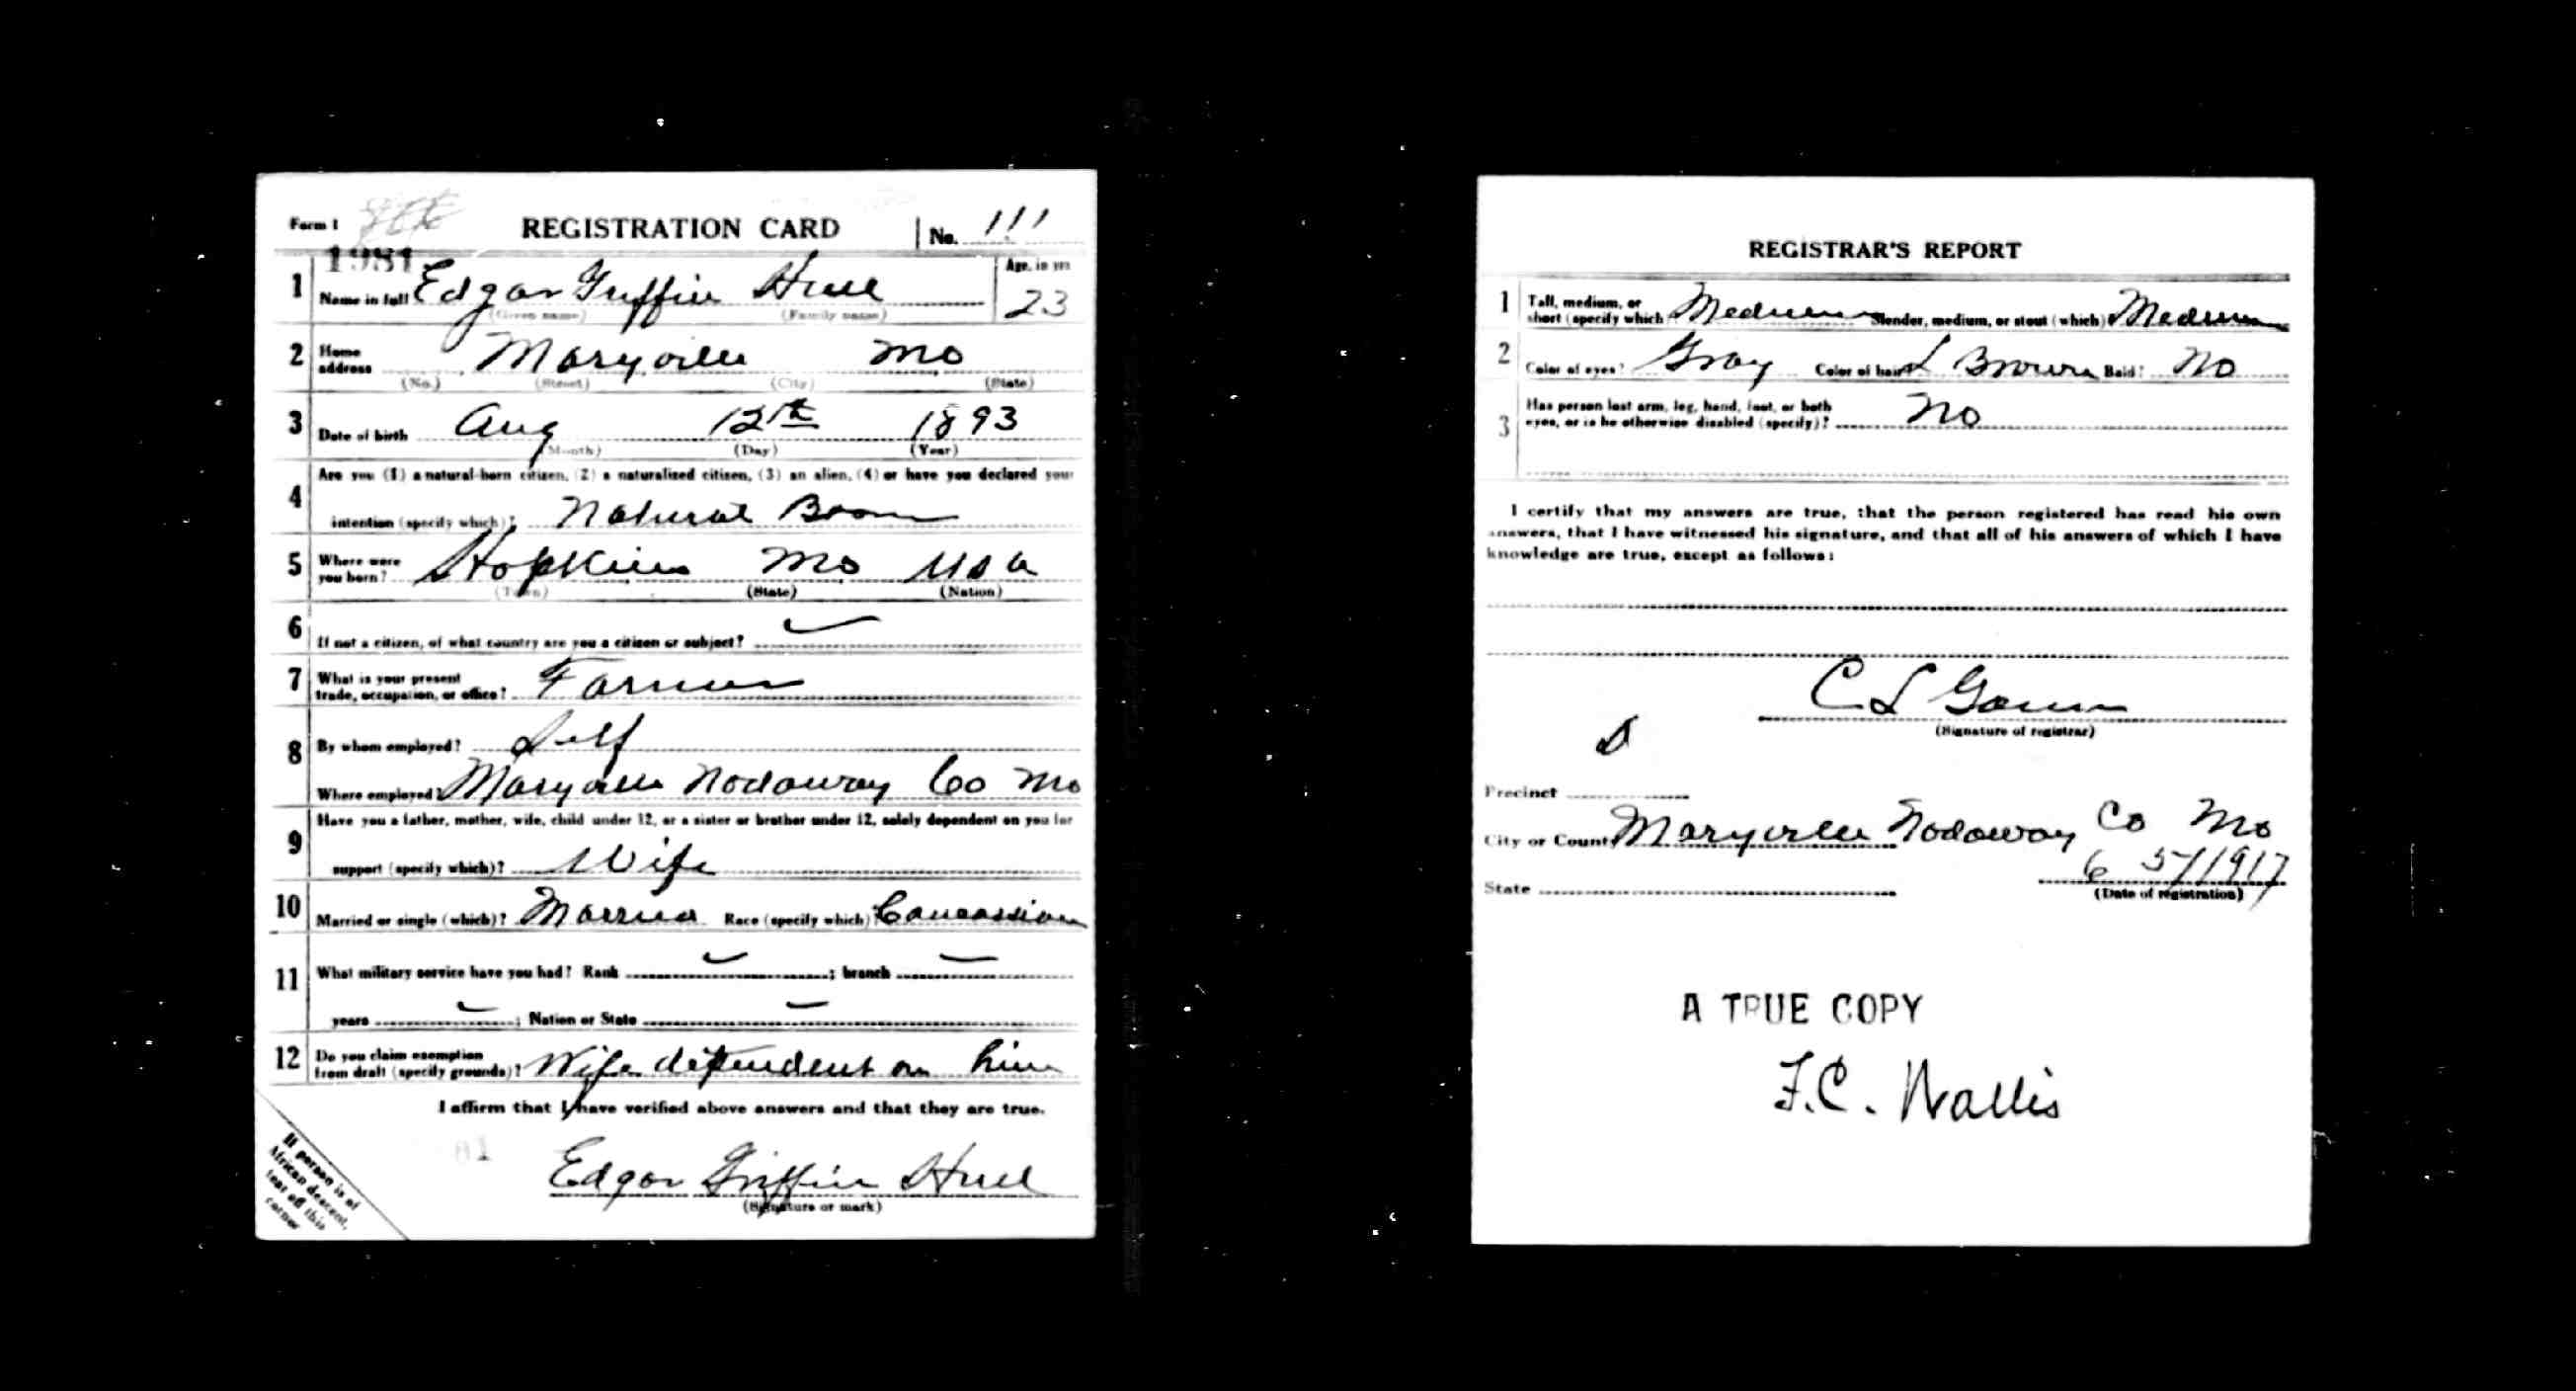 Form 1 REGISTRATION CARD No. 111
1981
1 Name in full Edgar Griffin Hull Age, in yrs 23
(Given name) (Family name)
2 Home address Maryville Mo
(No.) (Street) (City) (State)
3 Date of birth Aug 12th 1893
(Month) (Day) (Year)
Are you (1) a natural-born citizen, (2) a naturalized citizen, (3) an alien, (4) or have you declared your
4 intention (specify which)? Natural Born
5 Where were you born? Hopkins Mo USA
(Town) (State) (Nation)
6 If not a citizen, of what country are you a citizen or subject?
7 What is your present trade, occupation, or office? Farmer
8 By whom employed? Self
Where employed? Maryville Nodaway Co Mo
Have you a father, mother, wife, child under 12, or a sister or brother under 12, solely dependent on you for
9 support (specify which)? Wife
10 Married or single (which)? Married Race (specify which)? Caucassian
11 What military service have you had? Rank ; branch
years ; Nation or State
12 Do you claim exemption from draft (specify grounds)? Wife dependent on him
I affirm that I have verified above answers and that they are true.
Edgar Griffin Hull
(Signature or mark)
If person is of
African descent,
tear off this
corner
REGISTRAR'S REPORT
1 Tall, medium, or short (specify which) Medium Slender, medium, or stout (which) Medium
2 Color of eyes? Gray Color of hair L Brown Bald? No
3 Has person lost arm, leg, hand, foot, or both eyes, or is he otherwise disabled (specify)? No
I certify that my answers are true, that the person registered has read his own
answers, that I have witnessed his signature, and that all of his answers of which I have
knowledge are true, except as follows:
C L
(Signature of registrar)
Precinct
City or County Maryville Nodaway Co Mo
State 6 5/1917
(Date of registration)
A TRUE COPY
F.C. Wallis